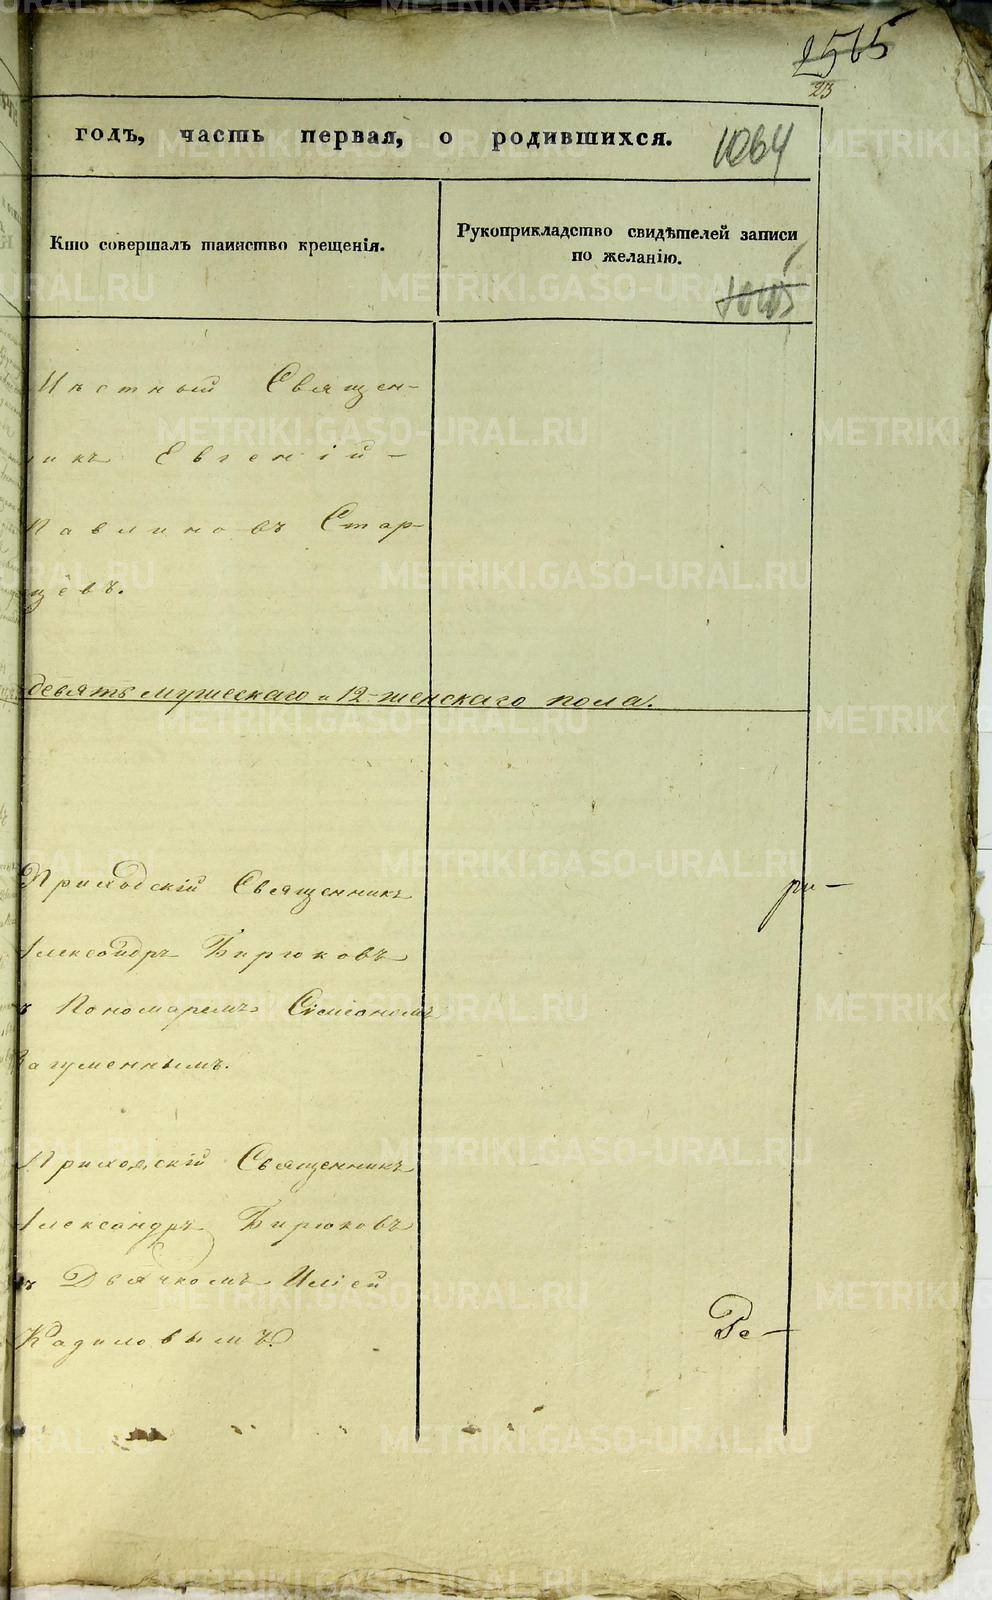 2515
23
годъ, часть первая, о родившихся.
1064
Кто совершалъ таинство крещенія.
Рукоприкладство свидѣтелей записи
по желанію.
Мѣстный Священ-
никъ Евгеній
Павлиновъ Стар-
цевъ.
девять мужескаго и 12 женскаго пола.
Приходскій Священникъ
Александръ Бирюковъ
съ Пономаремъ Сімеономъ
Загуменнымъ.
Приходскій Священникъ
Александръ Бирюковъ
съ Дьячкомъ Иліей
Кадиловымъ.
METRIKI.GASO-URAL.RU